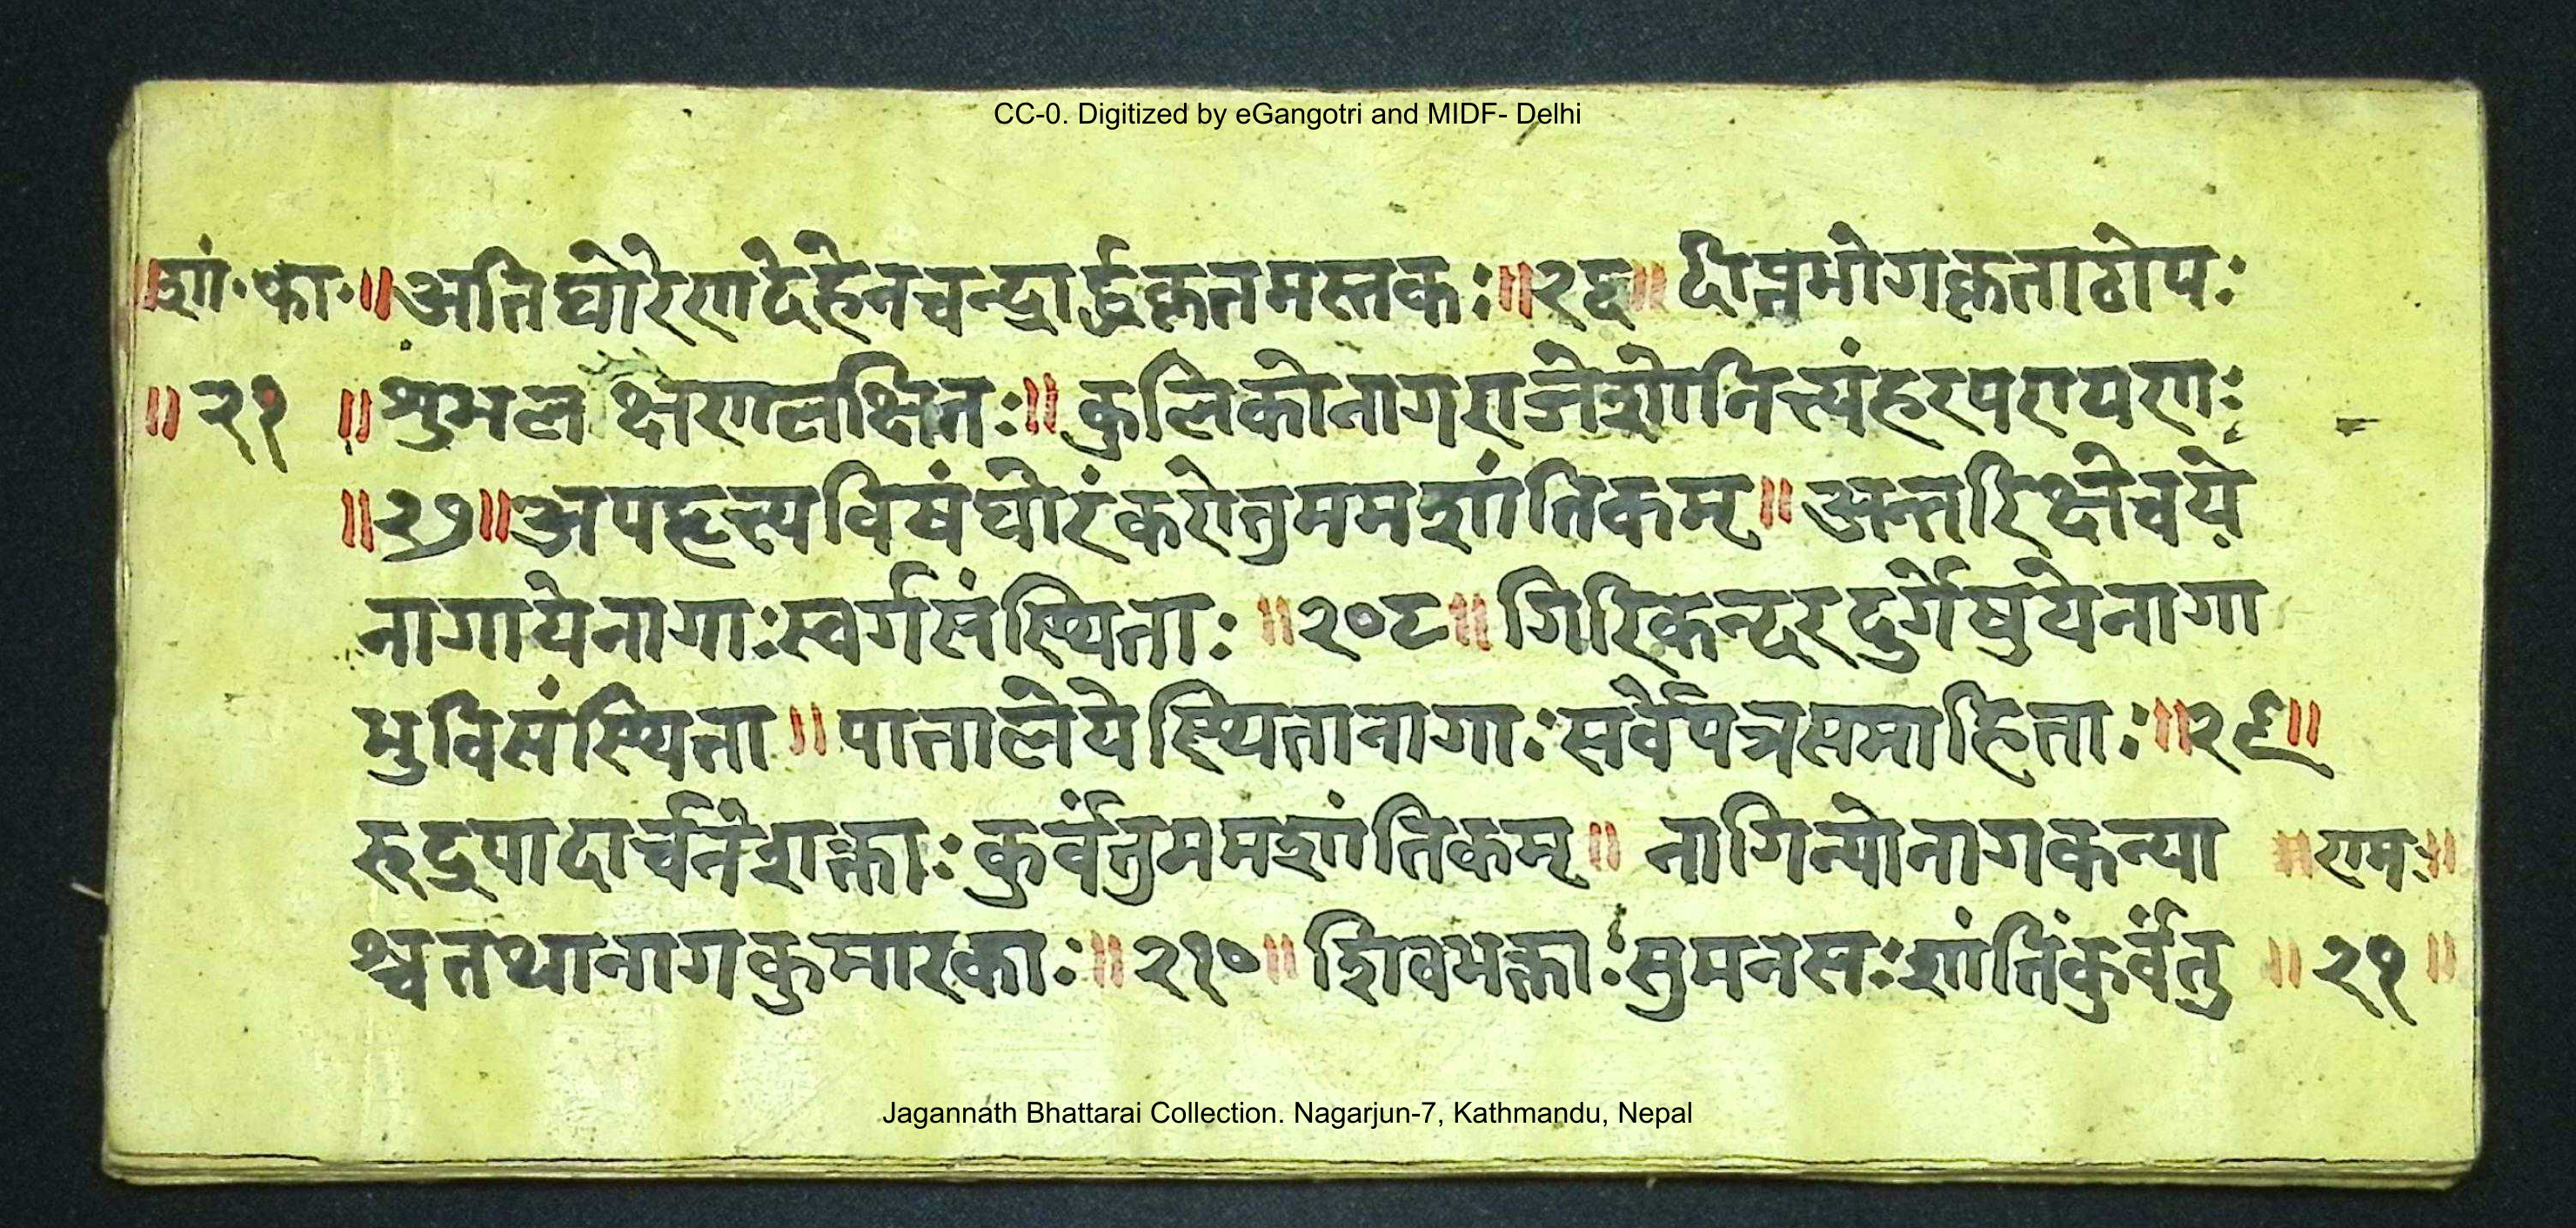 CC-0. Digitized by eGangotri and MIDF- Delhi
॥शां॰का॰॥अतिघोरेणदेहेनचन्द्रार्द्धकृतमस्तकः॥२६॥ दीप्तभोगकृताठोपः
॥२१ ॥शुभलक्षणलक्षितः॥ कुलिकोनागराजेशोनित्त्यंहरपरायणः
॥२७॥अपहृत्त्यविषंघोरंकरोतुममशांतिकम्॥ अन्तरिक्षेचये
नागायेनागाःस्वर्गसंस्थिताः ॥२०८॥ गिरिकन्दरदुर्गेषुयेनागा
भुविसंस्थिता॥ पातालेयेस्थितानागाःसर्वेपत्रसमाहिताः॥२९॥
रूद्रपादार्चनेशक्ताःकुर्वंतुममशांतिकम्॥ नागिन्योनागकन्या ॥रामः॥
श्चतथानागकुमारकाः॥२१०॥ शिवभक्ताःसुमनसःशांतिंकुर्वंतु ॥२१॥
Jagannath Bhattarai Collection. Nagarjun-7, Kathmandu, Nepal